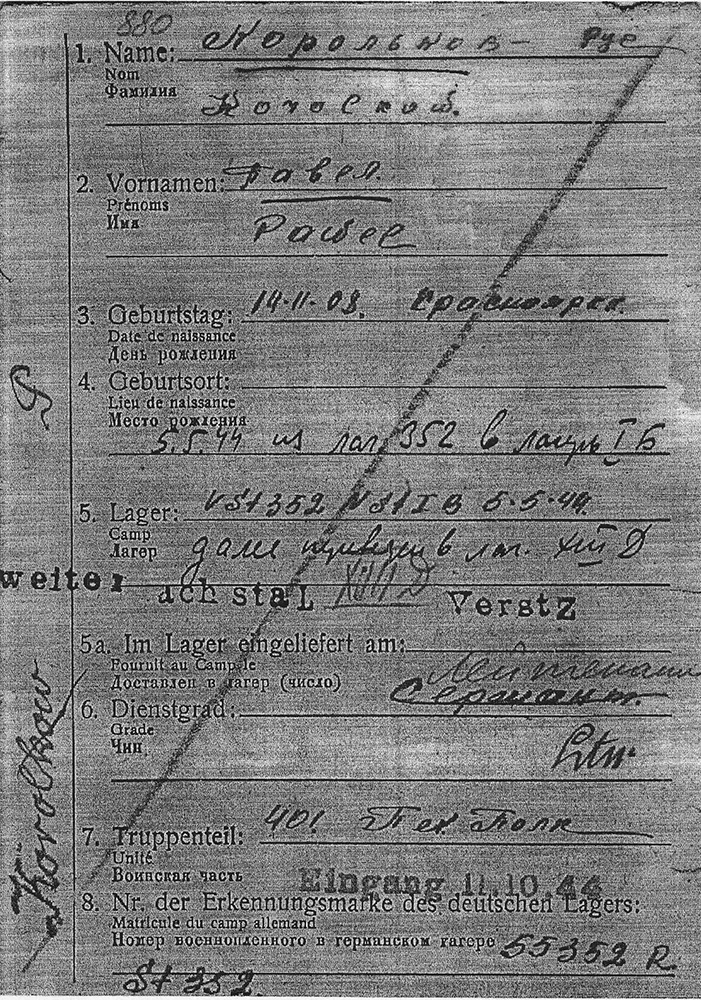 880
1. Name: Корольков - Рус
Nom
Фамилия
2. Vornamen: Павел.
Prénoms
Имя
3. Geburtstag: 14-11-08. Красноярск.
Date de naissance
День рождения
4. Geburtsort:
Lieu de naissance
Место рождения
5.5.44 из лаг. 352 в лагерь I Б
5. Lager: VSt 352 NSt I B 5-5-44.
Camp
Лагерь
далее переведен в лаг. XIII D
weiter nach staL XIII D Verstz
5a. Im Lager eingeliefert am:
Fournit au Camp le
Доставлен в лагерь (число) Лейтенант
Сержант.
6. Dienstgrad:
Grade
Чин
Ltn.
7. Truppenteil: 401. Пех Полк
Unité
Воинская часть
Eingang 11.10.44
8. Nr. der Erkennungsmarke des deutschen Lagers:
Matricule du camp allemand
Номер военнопленного в германском лагере 55352 R.
St 352.
Korolkow